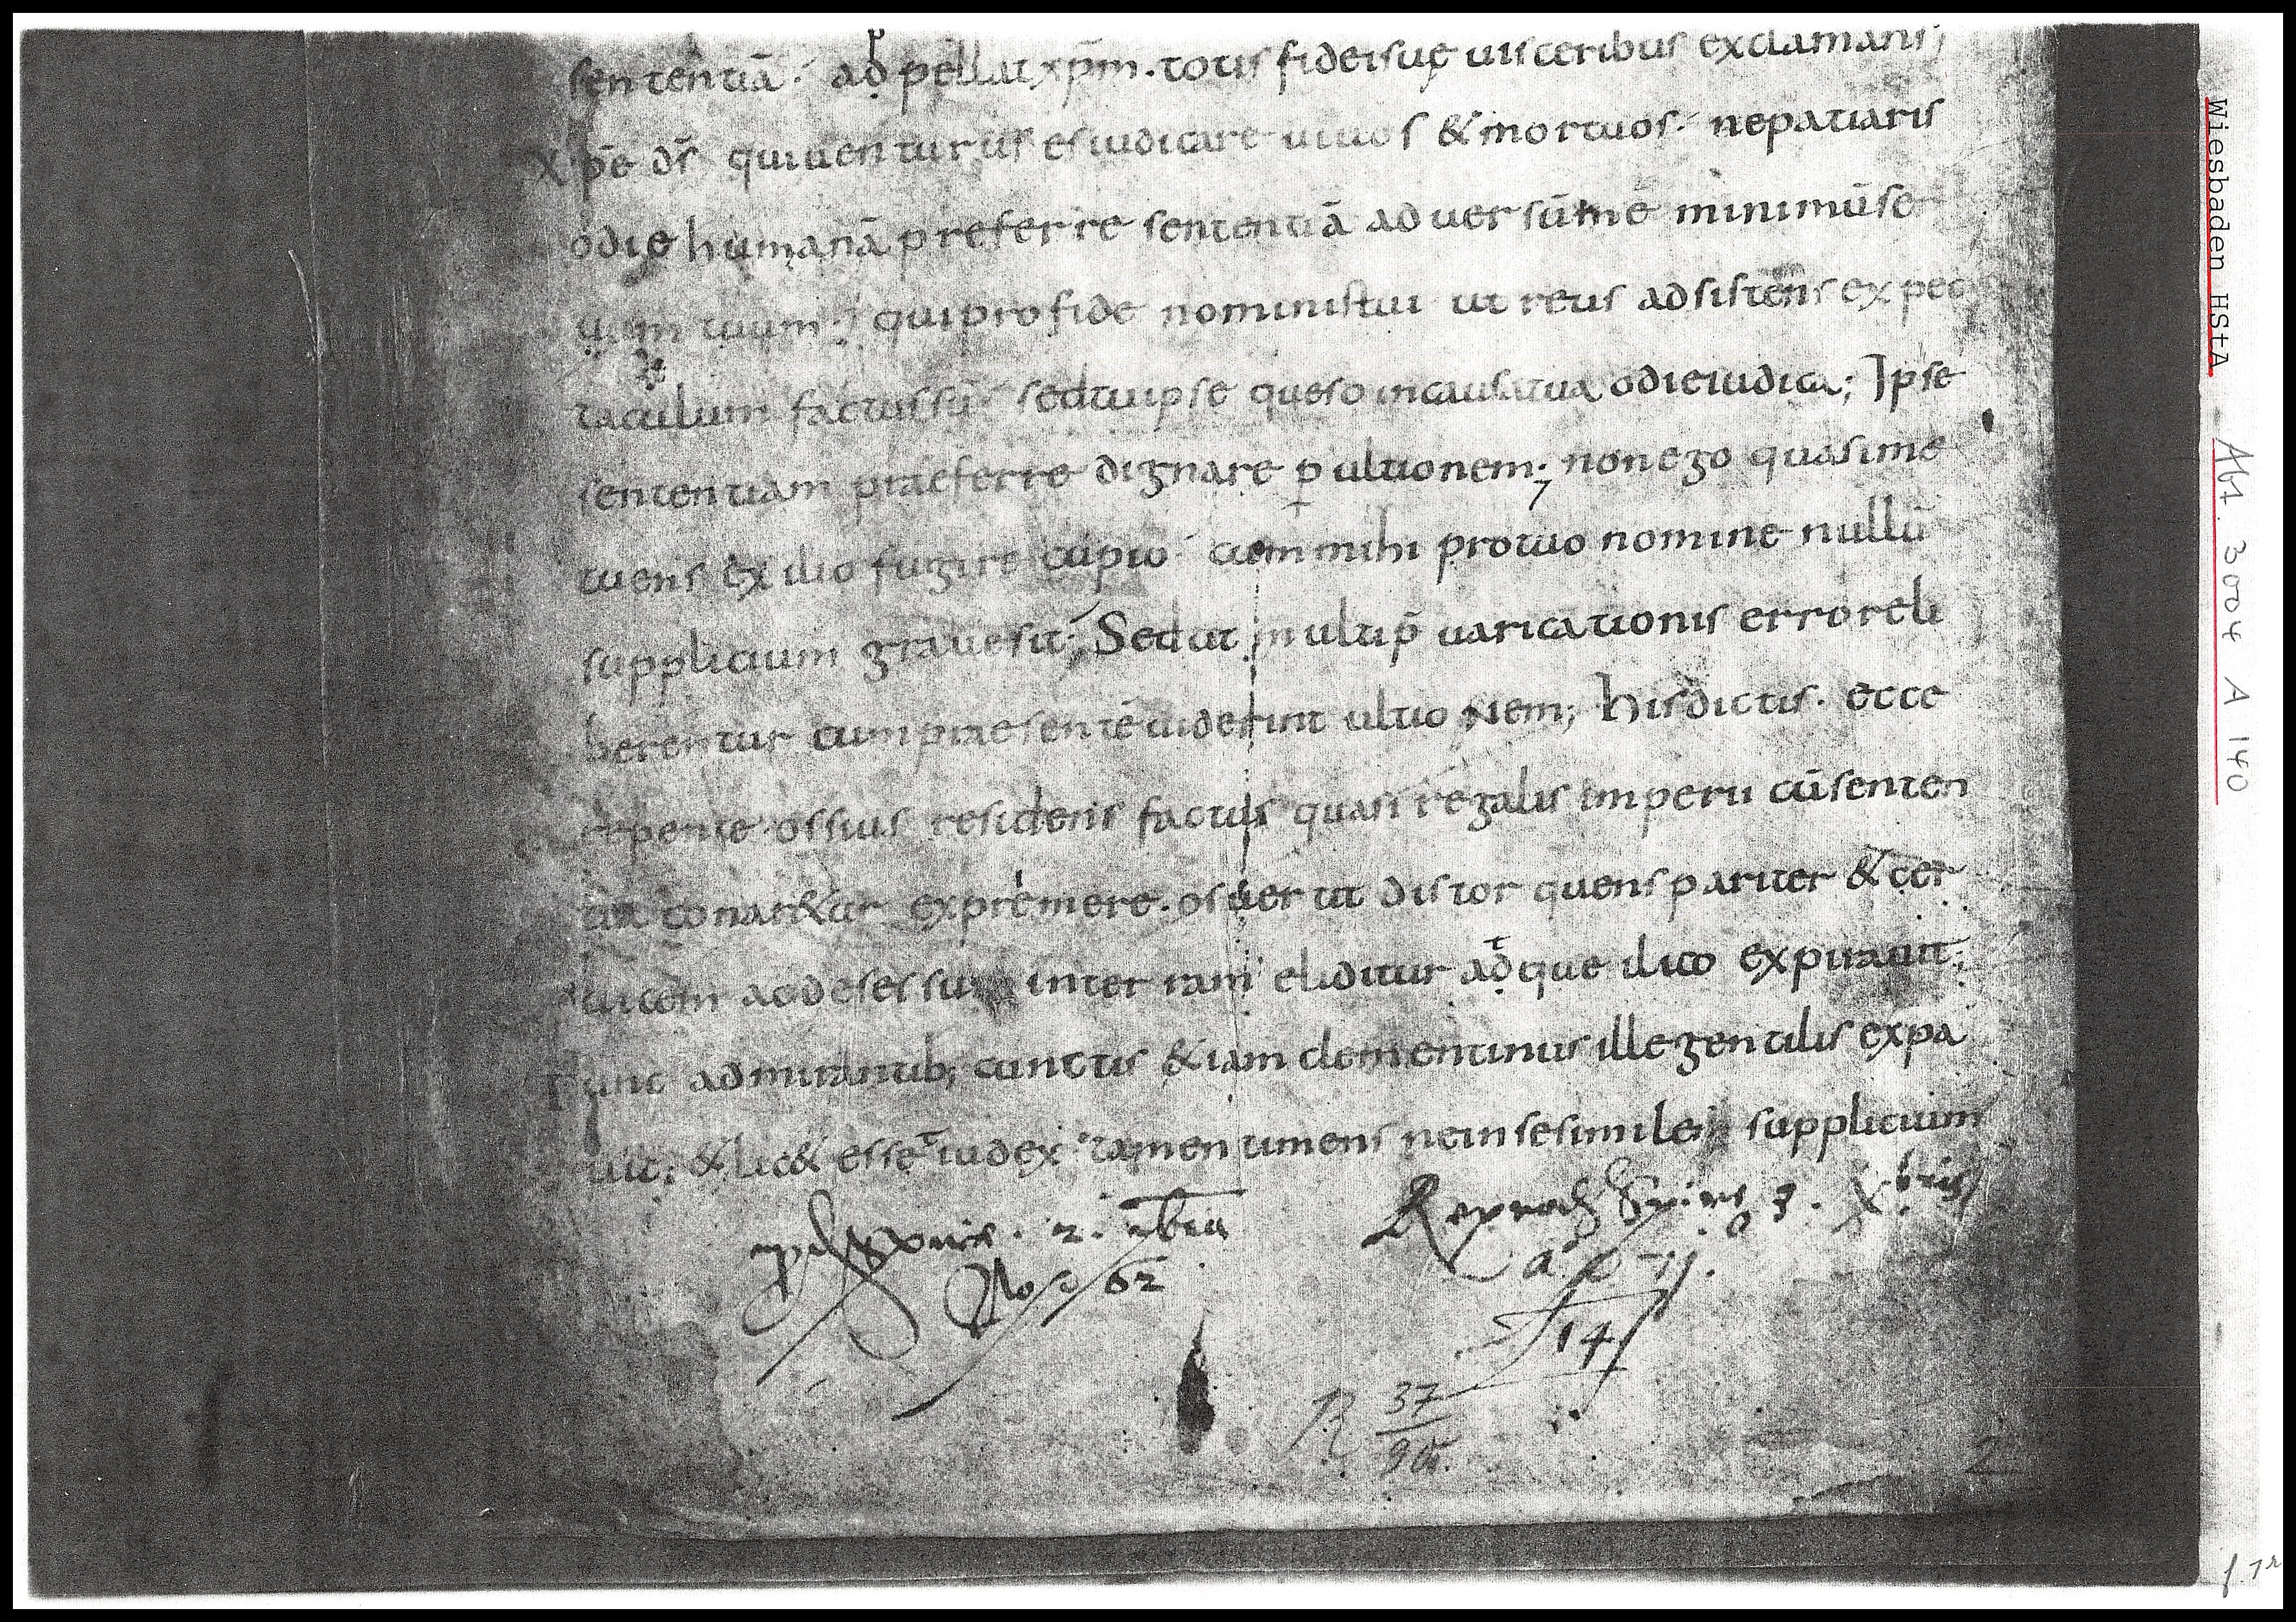 sententiā· adpellat xp̄m· totis fideisuę uisceribus exclamans;
Xpe ds̄ qui uenturus es iudicare uiuos & mortuos· nepatiaris
odie humanā preferre sententiā aduersūmē minimūse
uum tuum; quiprofide noministui ut reus adsistens expec
taculum factussū· sedtuipse queso incausatua odieiudica; Ipse
sententiam praeferre dignare p ultionem; nonego quasime
tuens exilio fugire cupio· cummihi protuo nomine nullū
supplicium grauesit; Sedut multip̄uaricationis erroreli
berentur cumpraesentēuiderint ultionem; hisdictis· ecce
repente ossius residens factus quasi regalis imperii cūsenten
tia conar&ur expremere· osuertit distorquens pariter & cer
uicem addesessum interram eliditur adque ilico expirauit;
Tunc admirantib; cunctis &iam clementinus illegentilis expa
uit; & lic& esse iudex tamen timens neinsesimilem supplicium
62
14
R 37
2
Wiesbaden HStA Abt. 3004 A 140
f. 7r